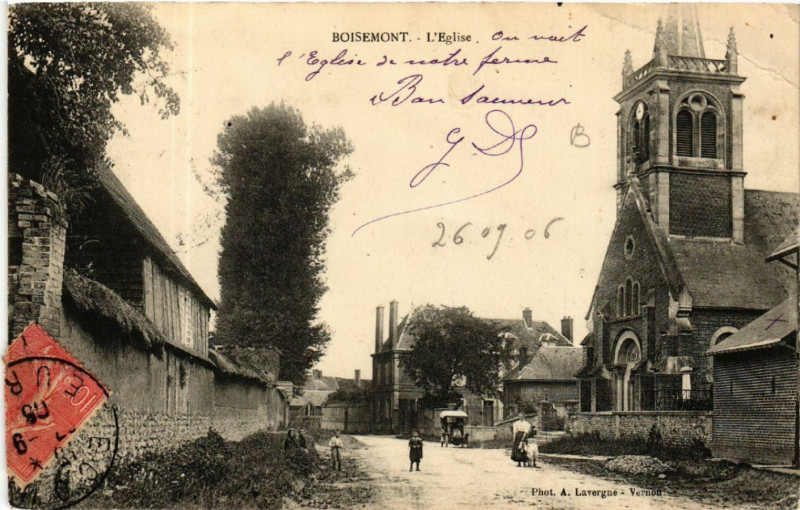 BOISEMONT. - L'Eglise
On voit
l'Eglise de notre ferme
Bon
G. D
B
26.09 06
EURE
Phot. A. Lavergne - Vernon